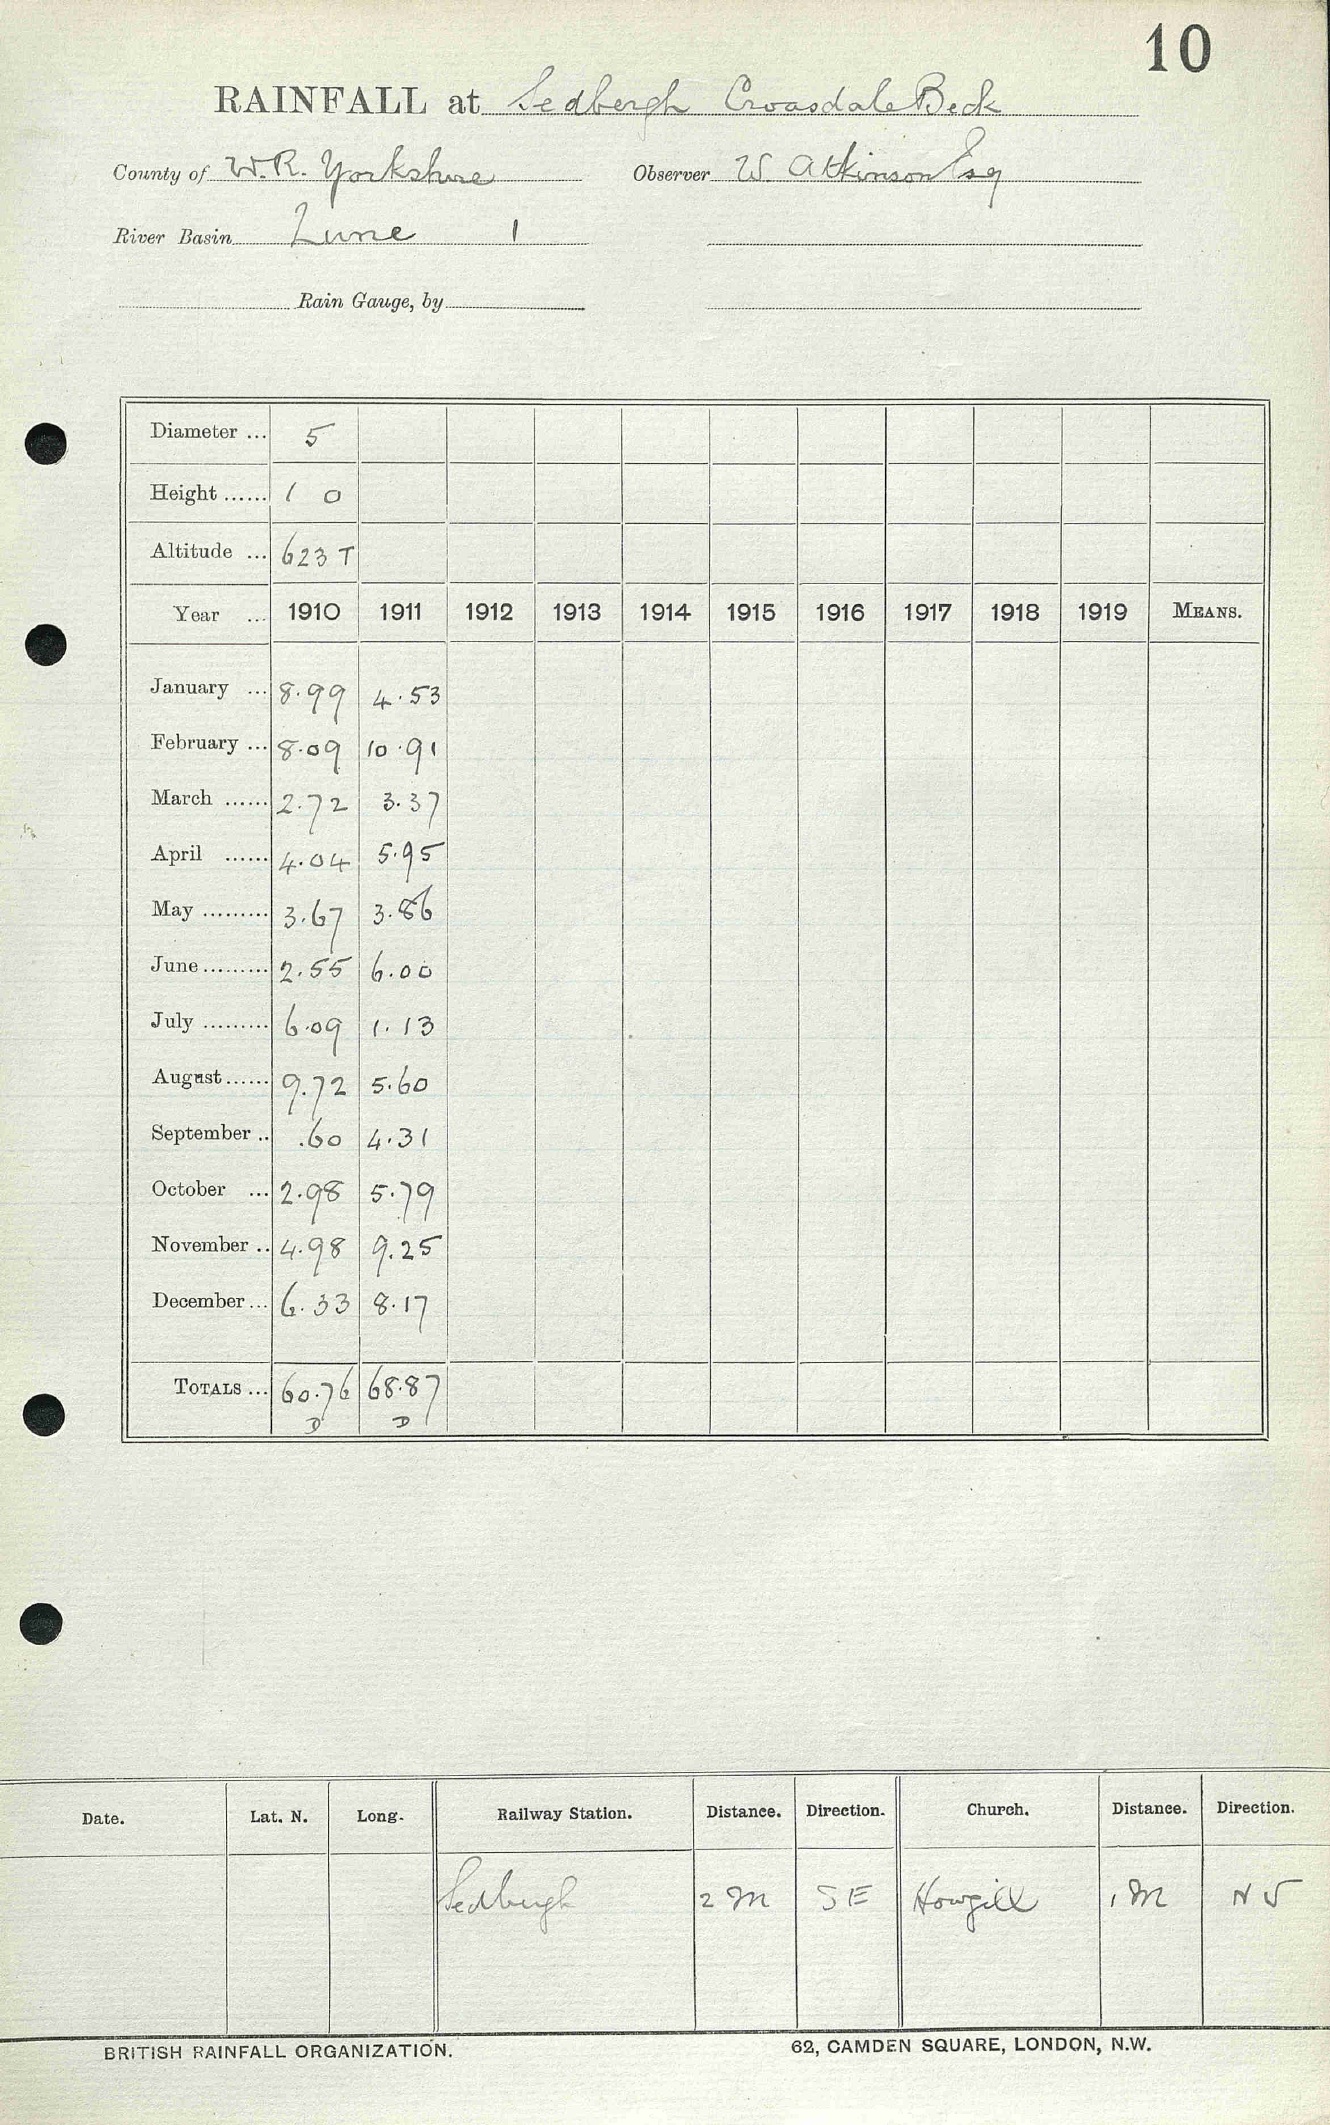 10
RAINFALL at Sedbergh Croasdale Beck
County of W.R. Yorkshire Observer W. Atkinson Esq
River Basin Lune 1
Rain Gauge, by
Diameter ... 5
Height ...... 1 0
Altitude ... 623 T
Year ... 1910 1911 1912 1913 1914 1915 1916 1917 1918 1919 MEANS.
January ... 8.99 4.53
February ... 8.09 10.91
March ...... 2.72 3.37
April ...... 4.04 5.95
May ......... 3.67 3.86
June ......... 2.55 6.00
July ......... 6.09 1.13
August ...... 9.72 5.60
September .. .60 4.31
October ... 2.98 5.79
November .. 4.98 9.25
December ... 6.33 8.17
TOTALS ... 60.76 68.87
D D
Date. Lat. N. Long. Railway Station. Distance. Direction. Church. Distance. Direction.
Sedbergh 2 M SE Howgill 1 M N
BRITISH RAINFALL ORGANIZATION. 62, CAMDEN SQUARE, LONDON, N.W.